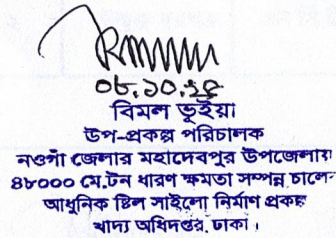 ০৮.১০.২৫
বিমল ভূইয়া
উপ-প্রকল্প পরিচালক
নওগাঁ জেলার মহাদেবপুর উপজেলায়
৪৮০০০ মে.টন ধারণ ক্ষমতা সম্পন্ন চালে
আধুনিক ষ্টিল সাইলো নির্মাণ প্রকল্প
খাদ্য অধিদপ্তর, ঢাকা।